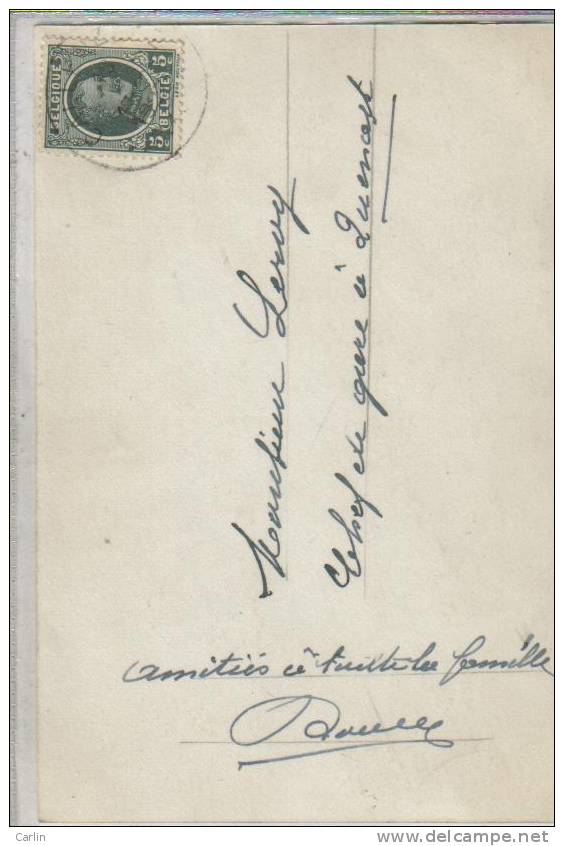 BELGIQUE 5c BELGIË 5c
Monsieur Leroy
Chef de gare à Quenast
Amitiés à toute la famille
Carlin
www.delcampe.net